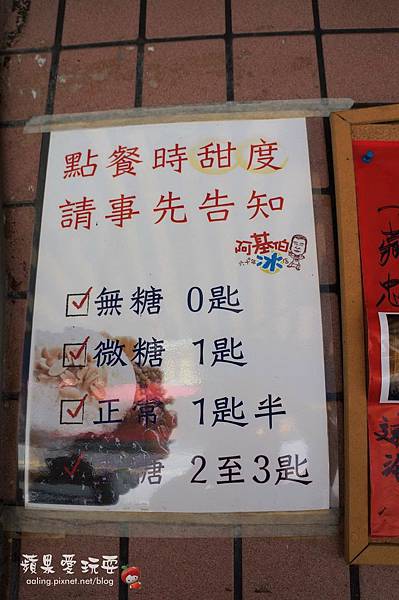 點餐時甜度
請事先告知
阿基伯
冰
無糖 0匙
微糖 1匙
正常 1匙半
糖 2至3匙
蘋果愛玩耍
aaling.pixnet.net/blog